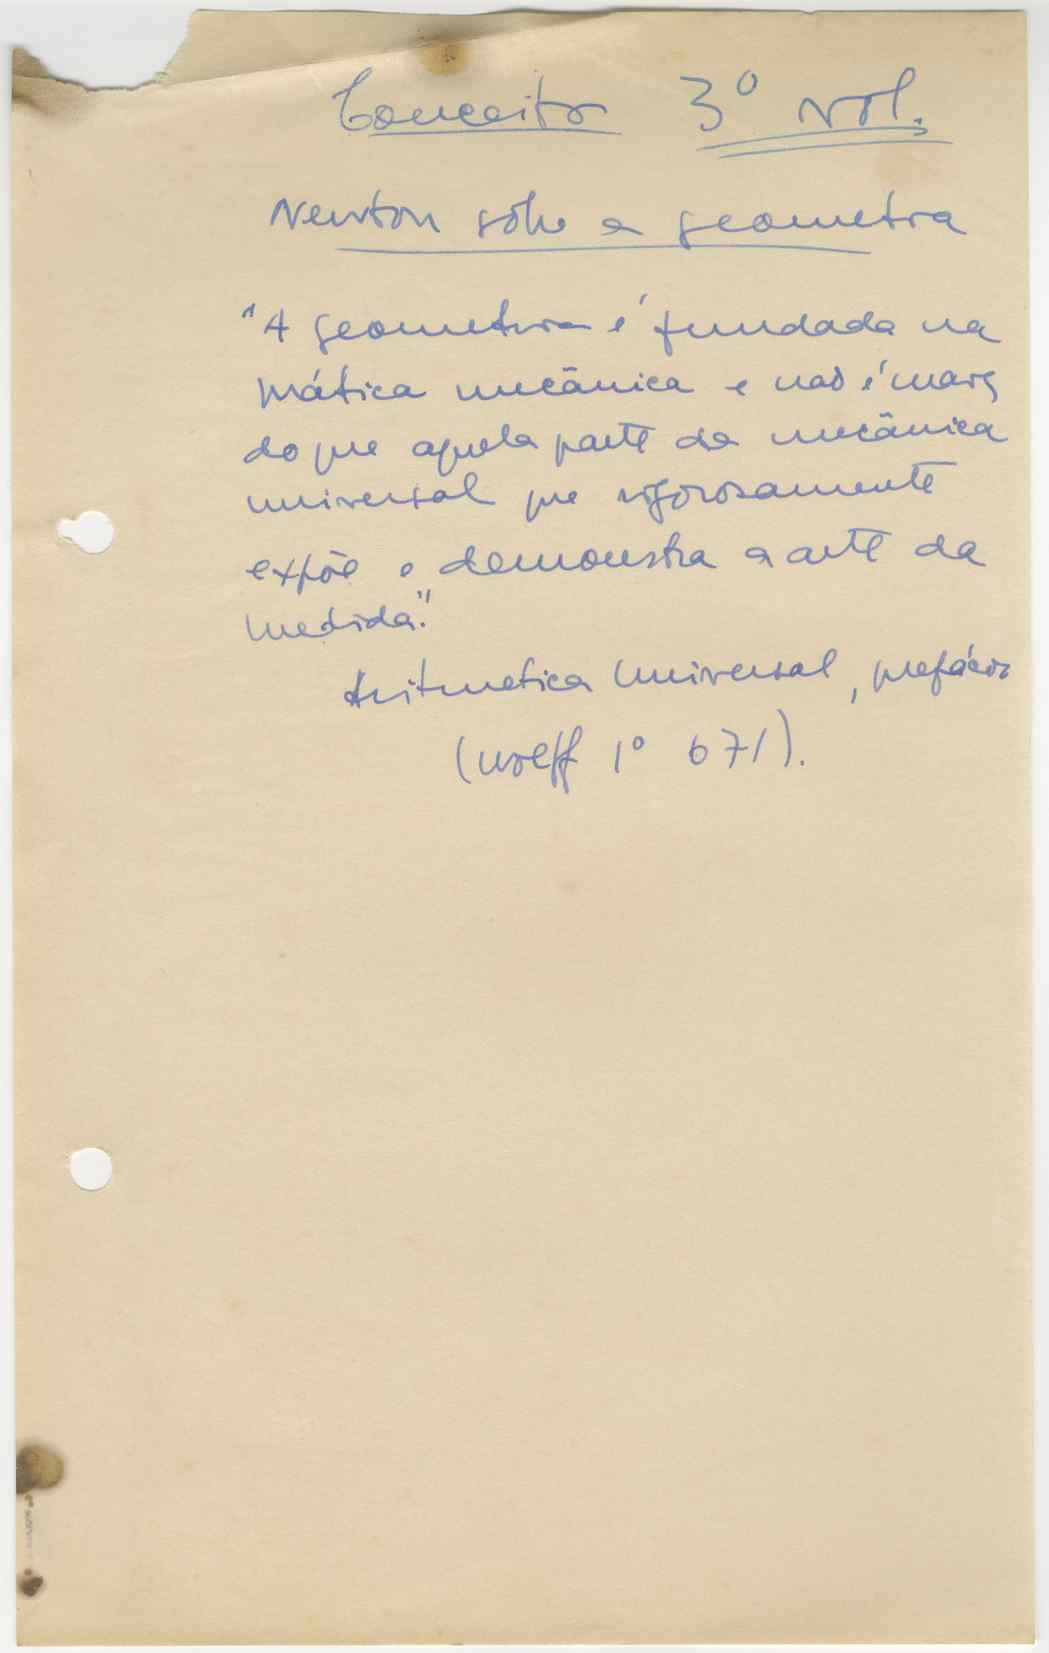 Conceito 3º vol.
Newton sôbre a geometria
"A geometria é fundada na
prática mecânica e não é mais
do que aquela parte da mecânica
universal que rigorosamente
expõe e demonstra a arte da
medida."
Aritmetica Universal, prefácio
(Wolff 1º 671).